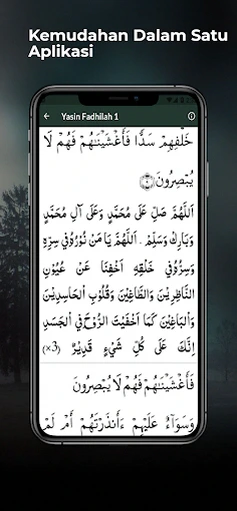 Kemudahan Dalam Satu
Aplikasi
Yasin Fadhilah 1
خَلْفِهِمْ سَدًّا فَأَغْشَيْنَاهُمْ فَهُمْ لَا
يُبْصِرُونَ
اَللّٰهُمَّ صَلِّ عَلَى مُحَمَّدٍ وَعَلَى آلِ مُحَمَّدٍ
وَبَارِكْ وَسَلِّمْ. اَللّٰهُمَّ يَا مَنْ نُوْرُهُ فِيْ سِرِّهِ
وَسِرُّهُ فِيْ خَلْقِهِ اَخْفِنَا عَنْ عُيُوْنِ
النَّاظِرِيْنَ وَالطَّاغِيْنَ وَقُلُوْبِ الْحَاسِدِيْنَ
وَالْبَاغِيْنَ كَمَا اَخْفَيْتَ الرُّوْحَ فِي الْجَسَدِ
اِنَّكَ عَلَى كُلِّ شَيْءٍ قَدِيْرٌ (×3)
فَأَغْشَيْنَاهُمْ فَهُمْ لَا يُبْصِرُونَ
وَسَوَآءٌ عَلَيْهِمْ ءَأَنذَرْتَهُمْ أَمْ لَمْ